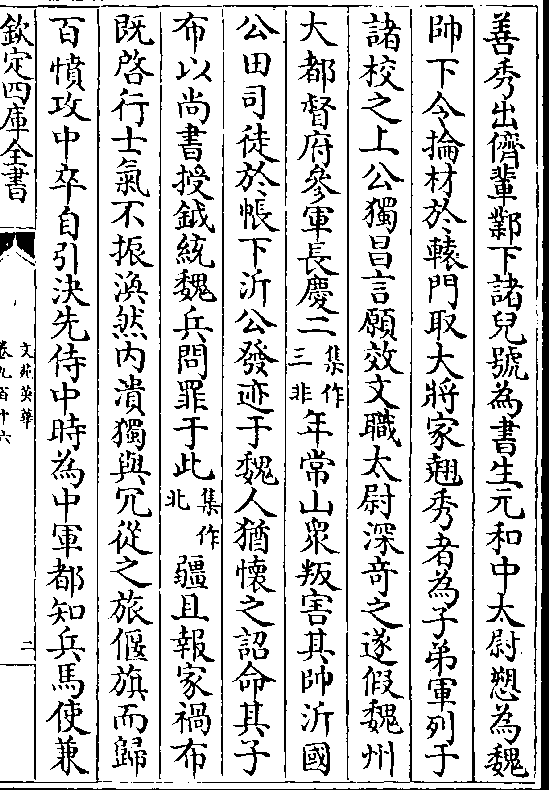 善秀出儕輩鄴下諸兒號為書生元和中太尉愬為魏
帥下令掄材於轅門取大將家翹秀者為子弟軍列于
諸校之上公獨昌言願效文職太尉深奇之遂假魏州
大都督府參軍長慶二集作三非年常山衆叛害其帥沂國
公田司徒於帳下沂公發迹于魏人猶懷之詔命其子
布以尚書授鉞統魏兵問罪于此集作北疆且報家禍布
既啓行士氣不振渙然内潰獨與冗從之旅偃旗而歸
百憤攻中卒自引決先侍中時為中軍都知兵馬使兼
欽定四庫全書
文苑英華
卷九百十六
二